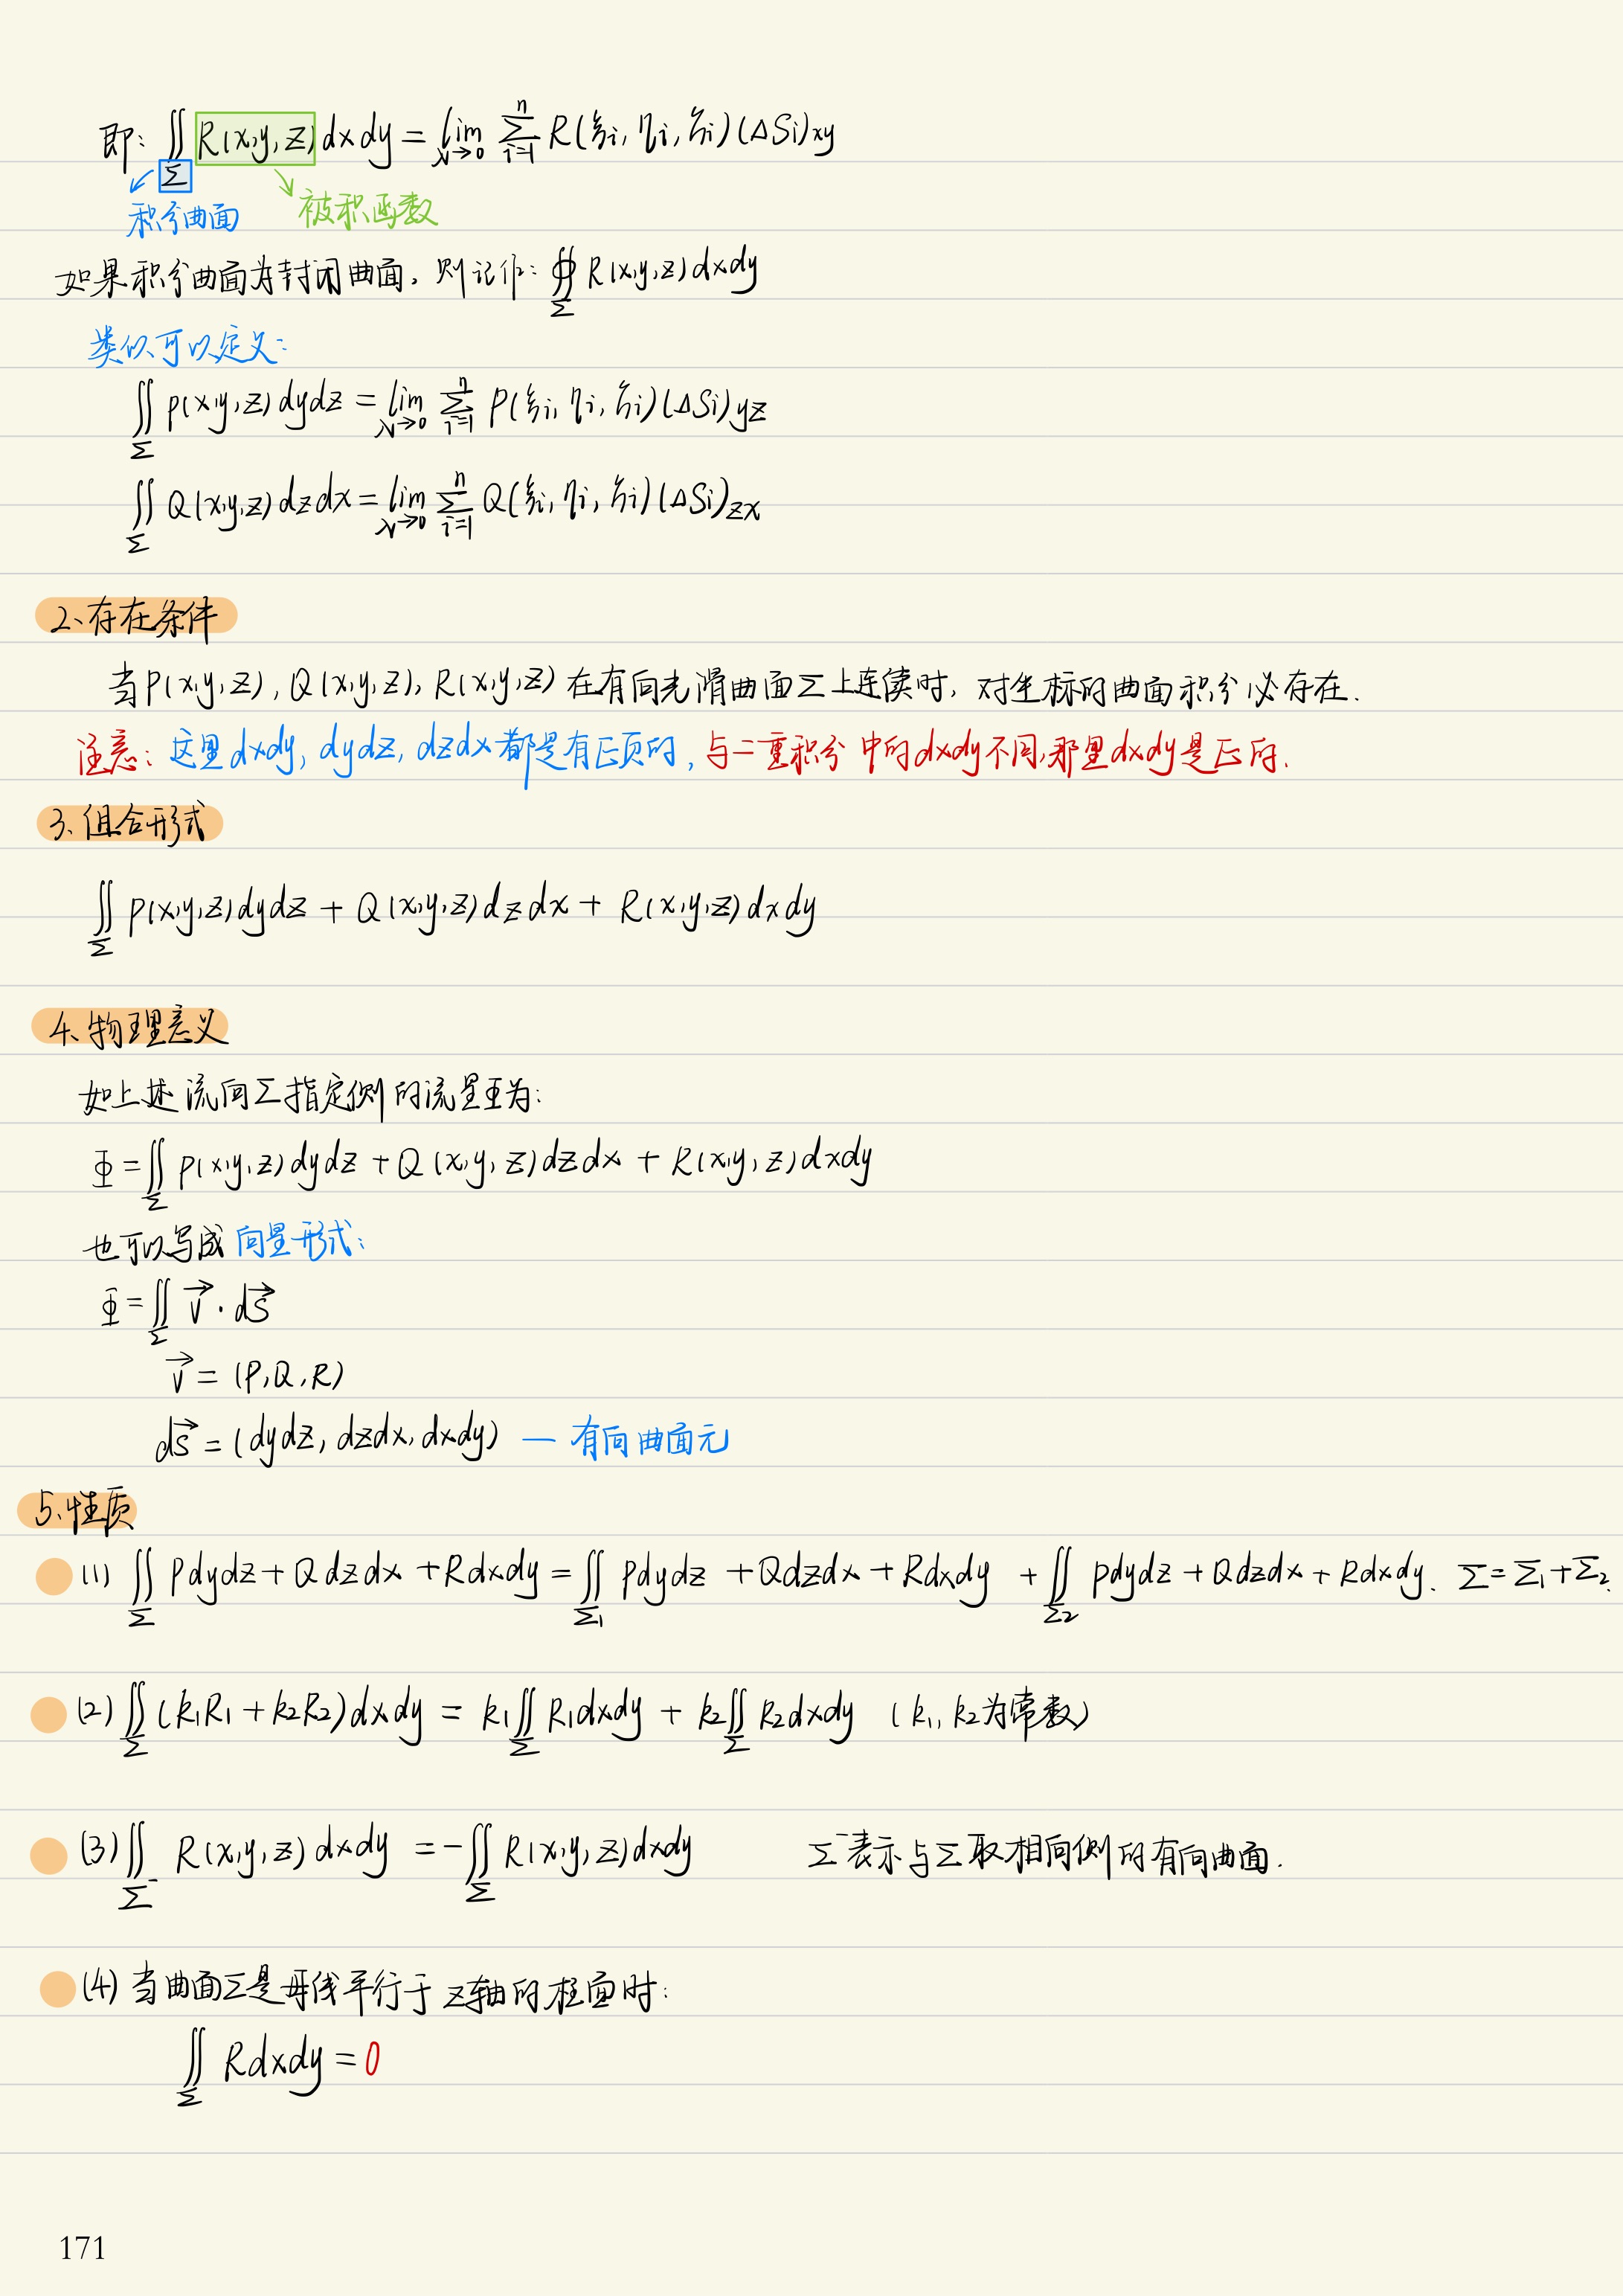 即: ∬_Σ R(x,y,z)dxdy = lim_{λ→0} Σ_{i=1}^{n} R(ξi, ηi, ζi)(ΔSi)xy
积分曲面 被积函数
如果积分曲面为封闭曲面, 则记作: ∯_Σ R(x,y,z)dxdy
类似可以定义:
∬_Σ P(x,y,z)dydz = lim_{λ→0} Σ_{i=1}^{n} P(ξi, ηi, ζi)(ΔSi)yz
∬_Σ Q(x,y,z)dzdx = lim_{λ→0} Σ_{i=1}^{n} Q(ξi, ηi, ζi)(ΔSi)zx
2、存在条件
当P(x,y,z), Q(x,y,z), R(x,y,z)在有向光滑曲面Σ上连续时, 对坐标的曲面积分必存在.
注意: 这里dxdy, dydz, dzdx都是有正负的, 与二重积分中的dxdy不同,那里dxdy是正的.
3、组合形式
∬_Σ P(x,y,z)dydz + Q(x,y,z)dzdx + R(x,y,z)dxdy
4、物理意义
如上述流向Σ指定侧的流量Φ为:
Φ=∬_Σ P(x,y,z)dydz + Q(x,y,z)dzdx + R(x,y,z)dxdy
也可以写成向量形式:
Φ=∬_Σ v⃗·dS⃗
v⃗ = (P,Q,R)
dS⃗ = (dydz, dzdx, dxdy) — 有向曲面元
5、性质
(1) ∬_Σ Pdydz+Qdzdx+Rdxdy = ∬_Σ1 Pdydz+Qdzdx+Rdxdy + ∬_Σ2 Pdydz+Qdzdx+Rdxdy. Σ=Σ1+Σ2.
(2) ∬_Σ (k1R1+k2R2)dxdy = k1∬_Σ R1dxdy + k2∬_Σ R2dxdy (k1, k2为常数)
(3) ∬_Σ⁻ R(x,y,z)dxdy = -∬_Σ R(x,y,z)dxdy Σ⁻表示与Σ取相向侧的有向曲面.
(4) 当曲面Σ是母线平行于z轴的柱面时:
∬_Σ Rdxdy = 0
171